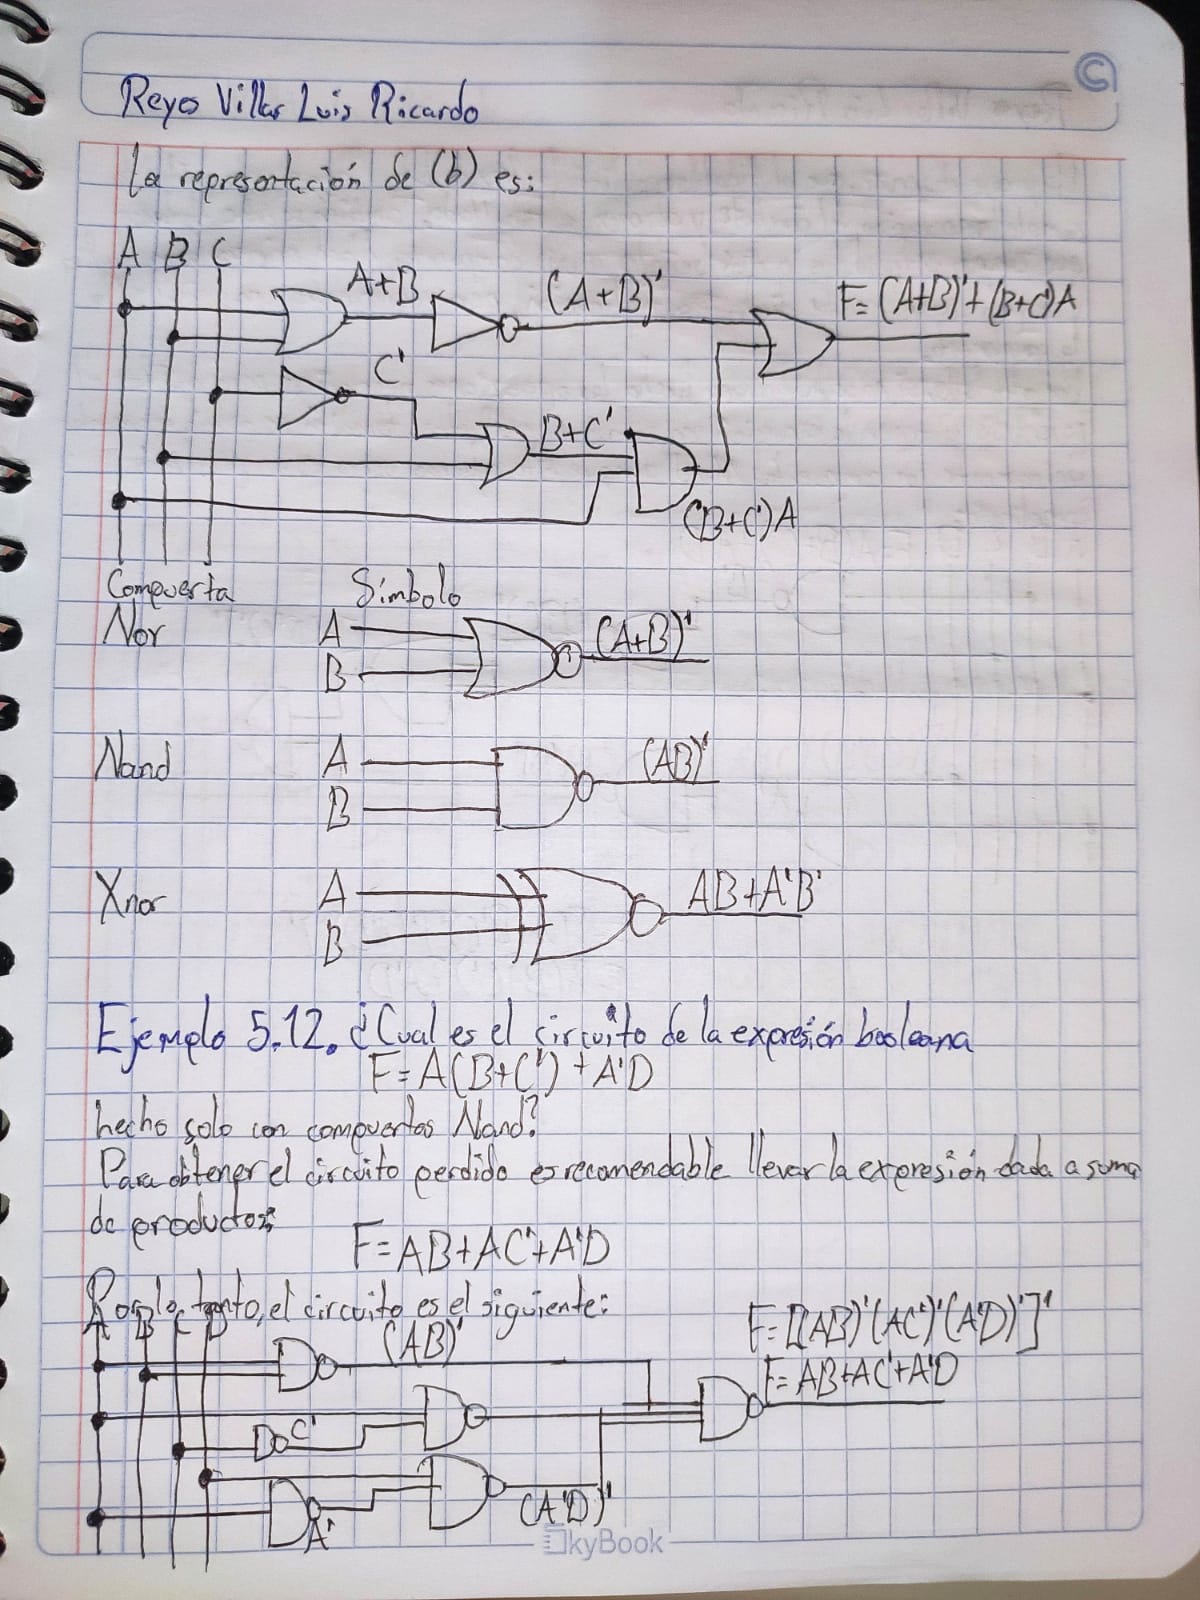 Reyes Villar Luis Ricardo
La representación de (b) es:
A B C
A+B
(A+B)'
F=(A+B)'+(B+C')A
C'
B+C'
(B+C')A
Compuerta Símbolo
Nor
A
B
(A+B)'
Nand
A
B
(AB)'
Xnor
A
B
AB+A'B'
Ejemplo 5.12. ¿Cual es el circuito de la expresión booleana
F=A(B+C')+A'D
hecho solo con compuertas Nand?
Para obtener el circuito perdido es recomendable llevar la expresión dada a suma
de productos:
F=AB+AC'+A'D
Por lo tanto, el circuito es el siguiente:
A B C D
(AB)'
F=[(AB)'(AC')'(A'D)']'
F=AB+AC'+A'D
C'
(A'D)'
A'
SkyBook